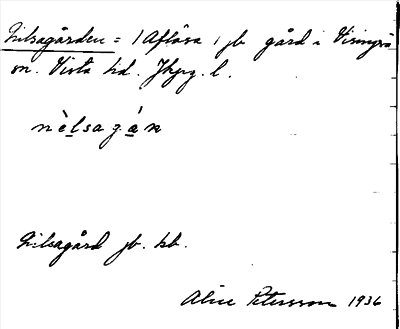 Nilsagården = 1 Aflösa, jb gård i Visingsö
sn. Vista hd. Jkpg. l.
nèlsagán
Nilsagård jb. kb.
Alice Petersson 1936